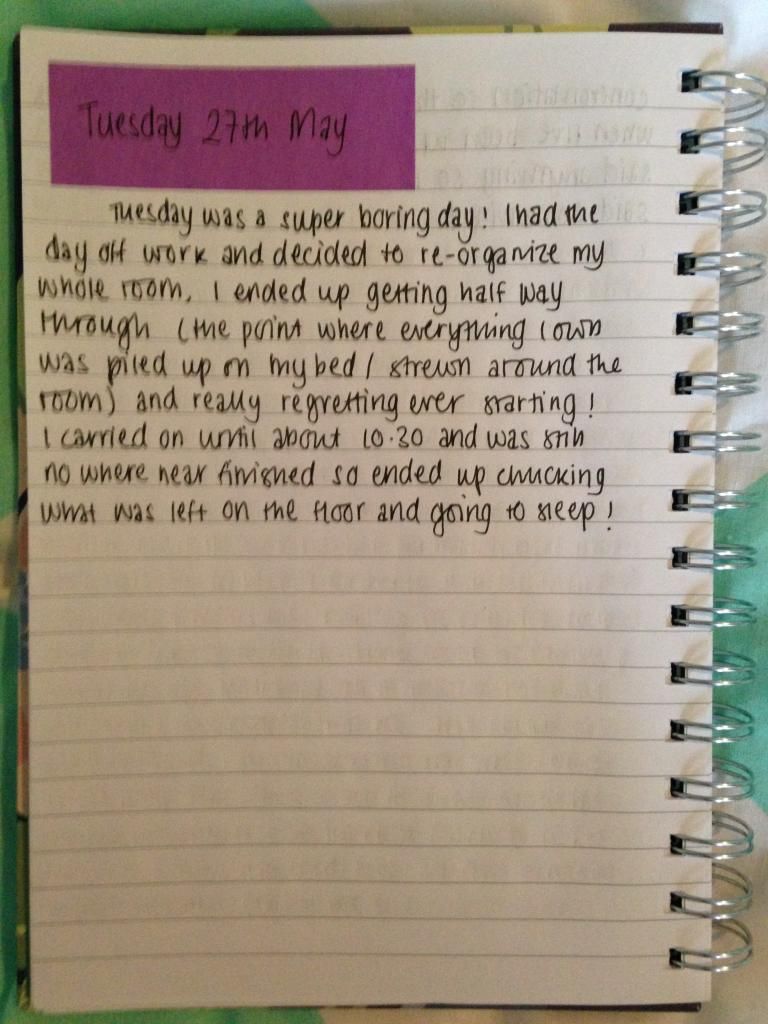 Tuesday 27th May
Tuesday was a super boring day! I had the
day off work and decided to re-organize my
whole room. I ended up getting half way
through (the point where everything I own
was piled up on my bed / strewn around the
room) and really regretting ever starting!
I carried on until about 10.30 and was still
no where near finished so ended up chucking
what was left on the floor and going to sleep!